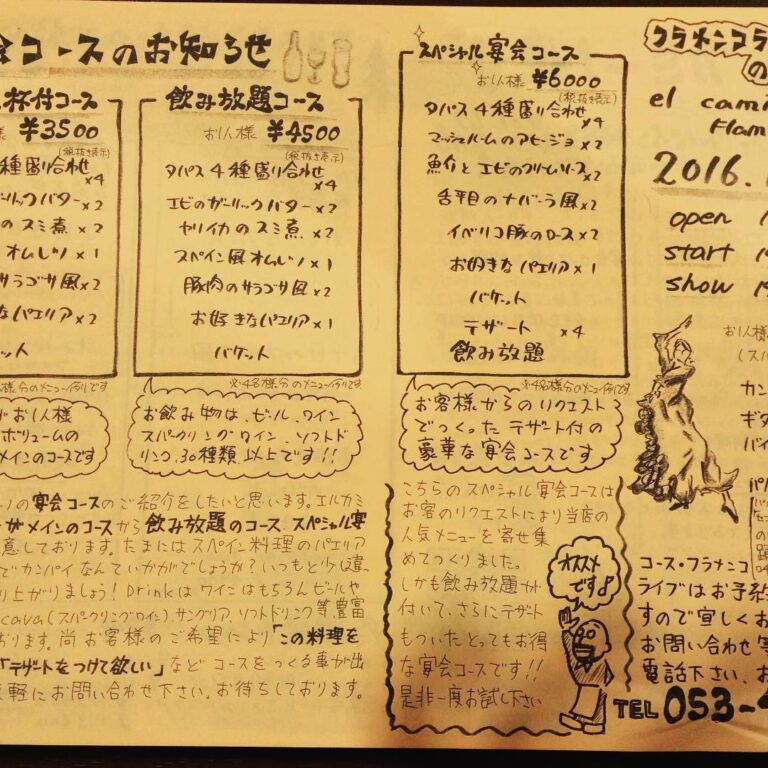 会コースのお知らせ
杯付コース
様 ¥3500
(税抜き表示)
種盛り合わせ
×4
ガーリックバター×2
のスミ煮×2
オムレツ×1
サラゴサ風×2
なパエリア×2
ケット
様分のメニュー例です
がお1人様
ボリュームの
メインのコースです
飲み放題コース
お1人様 ¥4500
(税抜き表示)
タパス4種盛り合わせ
×4
エビのガーリックバター×2
ヤリイカのスミ煮×2
スペイン風オムレツ×1
豚肉のサラゴサ風×2
お好きなパエリア×1
バケット
※4名様分のメニュー例です
お飲み物は、ビール、ワイン
スパークリングワイン、ソフトド
リンク、30種類以上です!!
スペシャル宴会コース
お1人様 ¥6000
(税抜き表示)
タパス4種盛り合わせ
×4
マッシュルームのアヒージョ×2
魚介とエビのクリームソース×2
舌平目のナバーラ風×2
イベリコ豚のロース×2
お好きなパエリア×1
バケット
デザート ×4
飲み放題
※4名様分のメニュー例です
お客様からのリクエスト
でつくったデザート付の
豪華な宴会コースです
の宴会コースのご紹介をしたいと思います。エルカミ
がメインのコースから飲み放題のコース、スペシャル宴
意しております。たまにはスペイン料理のパエリア
でカンパイなんていかがでしょうか?いつもと少し違
り上がりましょう!Drinkはワインはもちろんビールや
cava(スパークリングワイン)、サングリア、ソフトドリンク等豊富
おります。尚お客様のご希望により「この料理を
「デザートをつけて欲しい」などコースをつくる事が出
軽にお問い合わせ下さい。お待ちしております。
こちらのスペシャル宴会コースは
お客のリクエストにより当店の
人気メニューを寄せ集
めてつくりました。
しかも飲み放題が
付いて、さらにデザート
もついたとってもお得
な宴会コースです!!
是非一度お試し下さい
オススメ
です♪
フラメンコラ
の
el cami
Flam
2016.1
open 1
start 1
show 19
お1人様
(スパ
カン
ギタ
バイ
コース・フラメンコ
ライブはお予約
すので宜しくお
お問い合わせ等
電話下さい。お
TEL 053-4